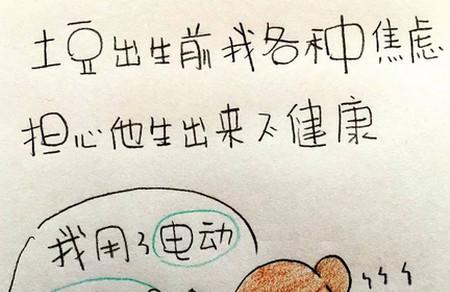 土豆出生前我各种焦虑
担心他生出来不健康
我用了电动